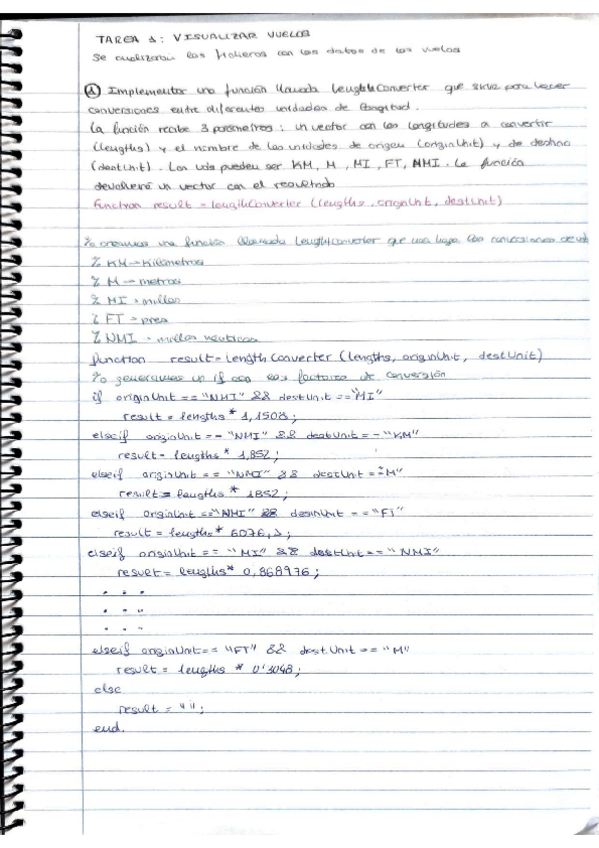 TAREA 1: VISUALIZAR VUELOS
Se analizarán los ficheros con los datos de los vuelos
① Implementar una función llamada lengthConverter que sirva para hacer
conversiones entre diferentes unidades de longitud.
La función recibe 3 parámetros: un vector con las longitudes a convertir
(lengths) y el nombre de las unidades de origen (originUnit) y de destino
(destUnit). Las uds pueden ser KM, M, MI, FT, NMI. La función
devolverá un vector con el resultado
function result = lengthConverter (lengths, originUnit, destUnit)
% creamos una función llamada LengthConverter que nos haga las conversiones
% KM → Kilómetros
% M → metros
% MI → millas
% FT → pies
% NMI → millas náuticas
function result = lengthConverter (lengths, originUnit, destUnit)
% generamos un if con los factores de conversión
if originUnit == "NMI" && destUnit == "MI"
result = lengths * 1,1508;
elseif originUnit == "NMI" && destUnit == "KM"
result = lengths * 1,852;
elseif originUnit == "NMI" && destUnit == "M"
result = lengths * 1852;
elseif originUnit == "NMI" && destUnit == "FT"
result = lengths * 6076,1;
elseif originUnit == "MI" && destUnit == "NMI"
result = lengths * 0,868976;
. . .
. . .
. . .
elseif originUnit == "FT" && destUnit == "M"
result = lengths * 0'3048;
else
result = "";
end.